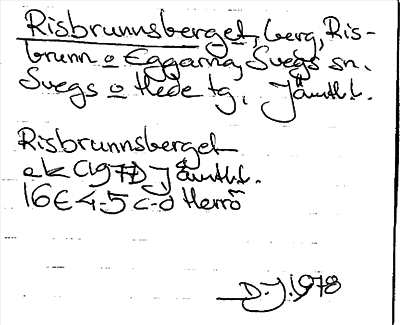 Risbrunnsberget, berg, Ris-
brunn o Eggarna, Svegs sn.
Svegs o Hede tg, Jämtl.
Risbrunnsberget
ek C1977D Jämtl.
16E 4-5 c-d Herrö
D.J. 1978